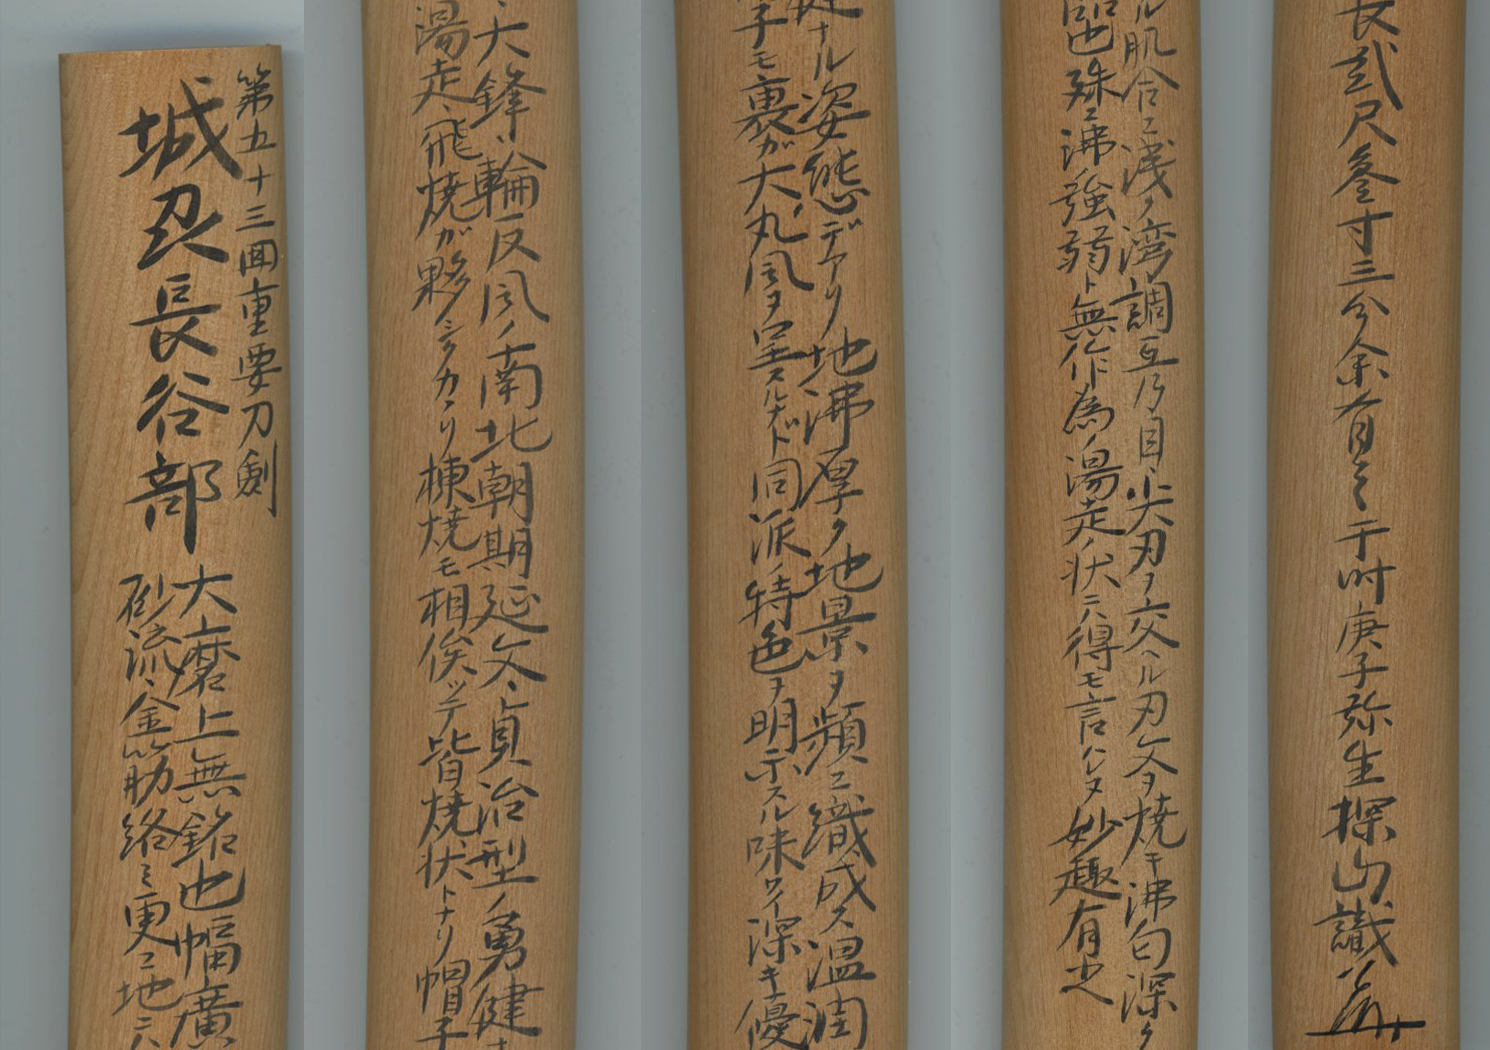 第五十三回重要刀剣
城刕長谷部
大磨上無銘也幅廣
砂流ゝ金筋絡ミ更ニ地ニハ
ゝ大鋒ゝ輪反風ノ南北朝期延文ゝ貞治型ノ勇健ナ
湯走ゝ飛焼が夥シクカヽリ棟焼モ相俟ッテ皆焼状トナリ帽子
健ナル姿態デアリ地沸厚ク地景ヲ頻ニ織成ス温潤
子モ裏が大丸風ヲ呈スルナド同派ノ特色ヲ明示スル味ワイ深キ優
ル肌合ニ浅ク湾調互乃目ゝ尖刃ヲ交ヘル刃文ヲ焼キ沸匂深ク
品也殊ニ沸強弱ト無作為ノ湯走ノ状ニハ得モ言ハレヌ妙趣有之
長弐尺参寸三分余有之于時庚子弥生探山識